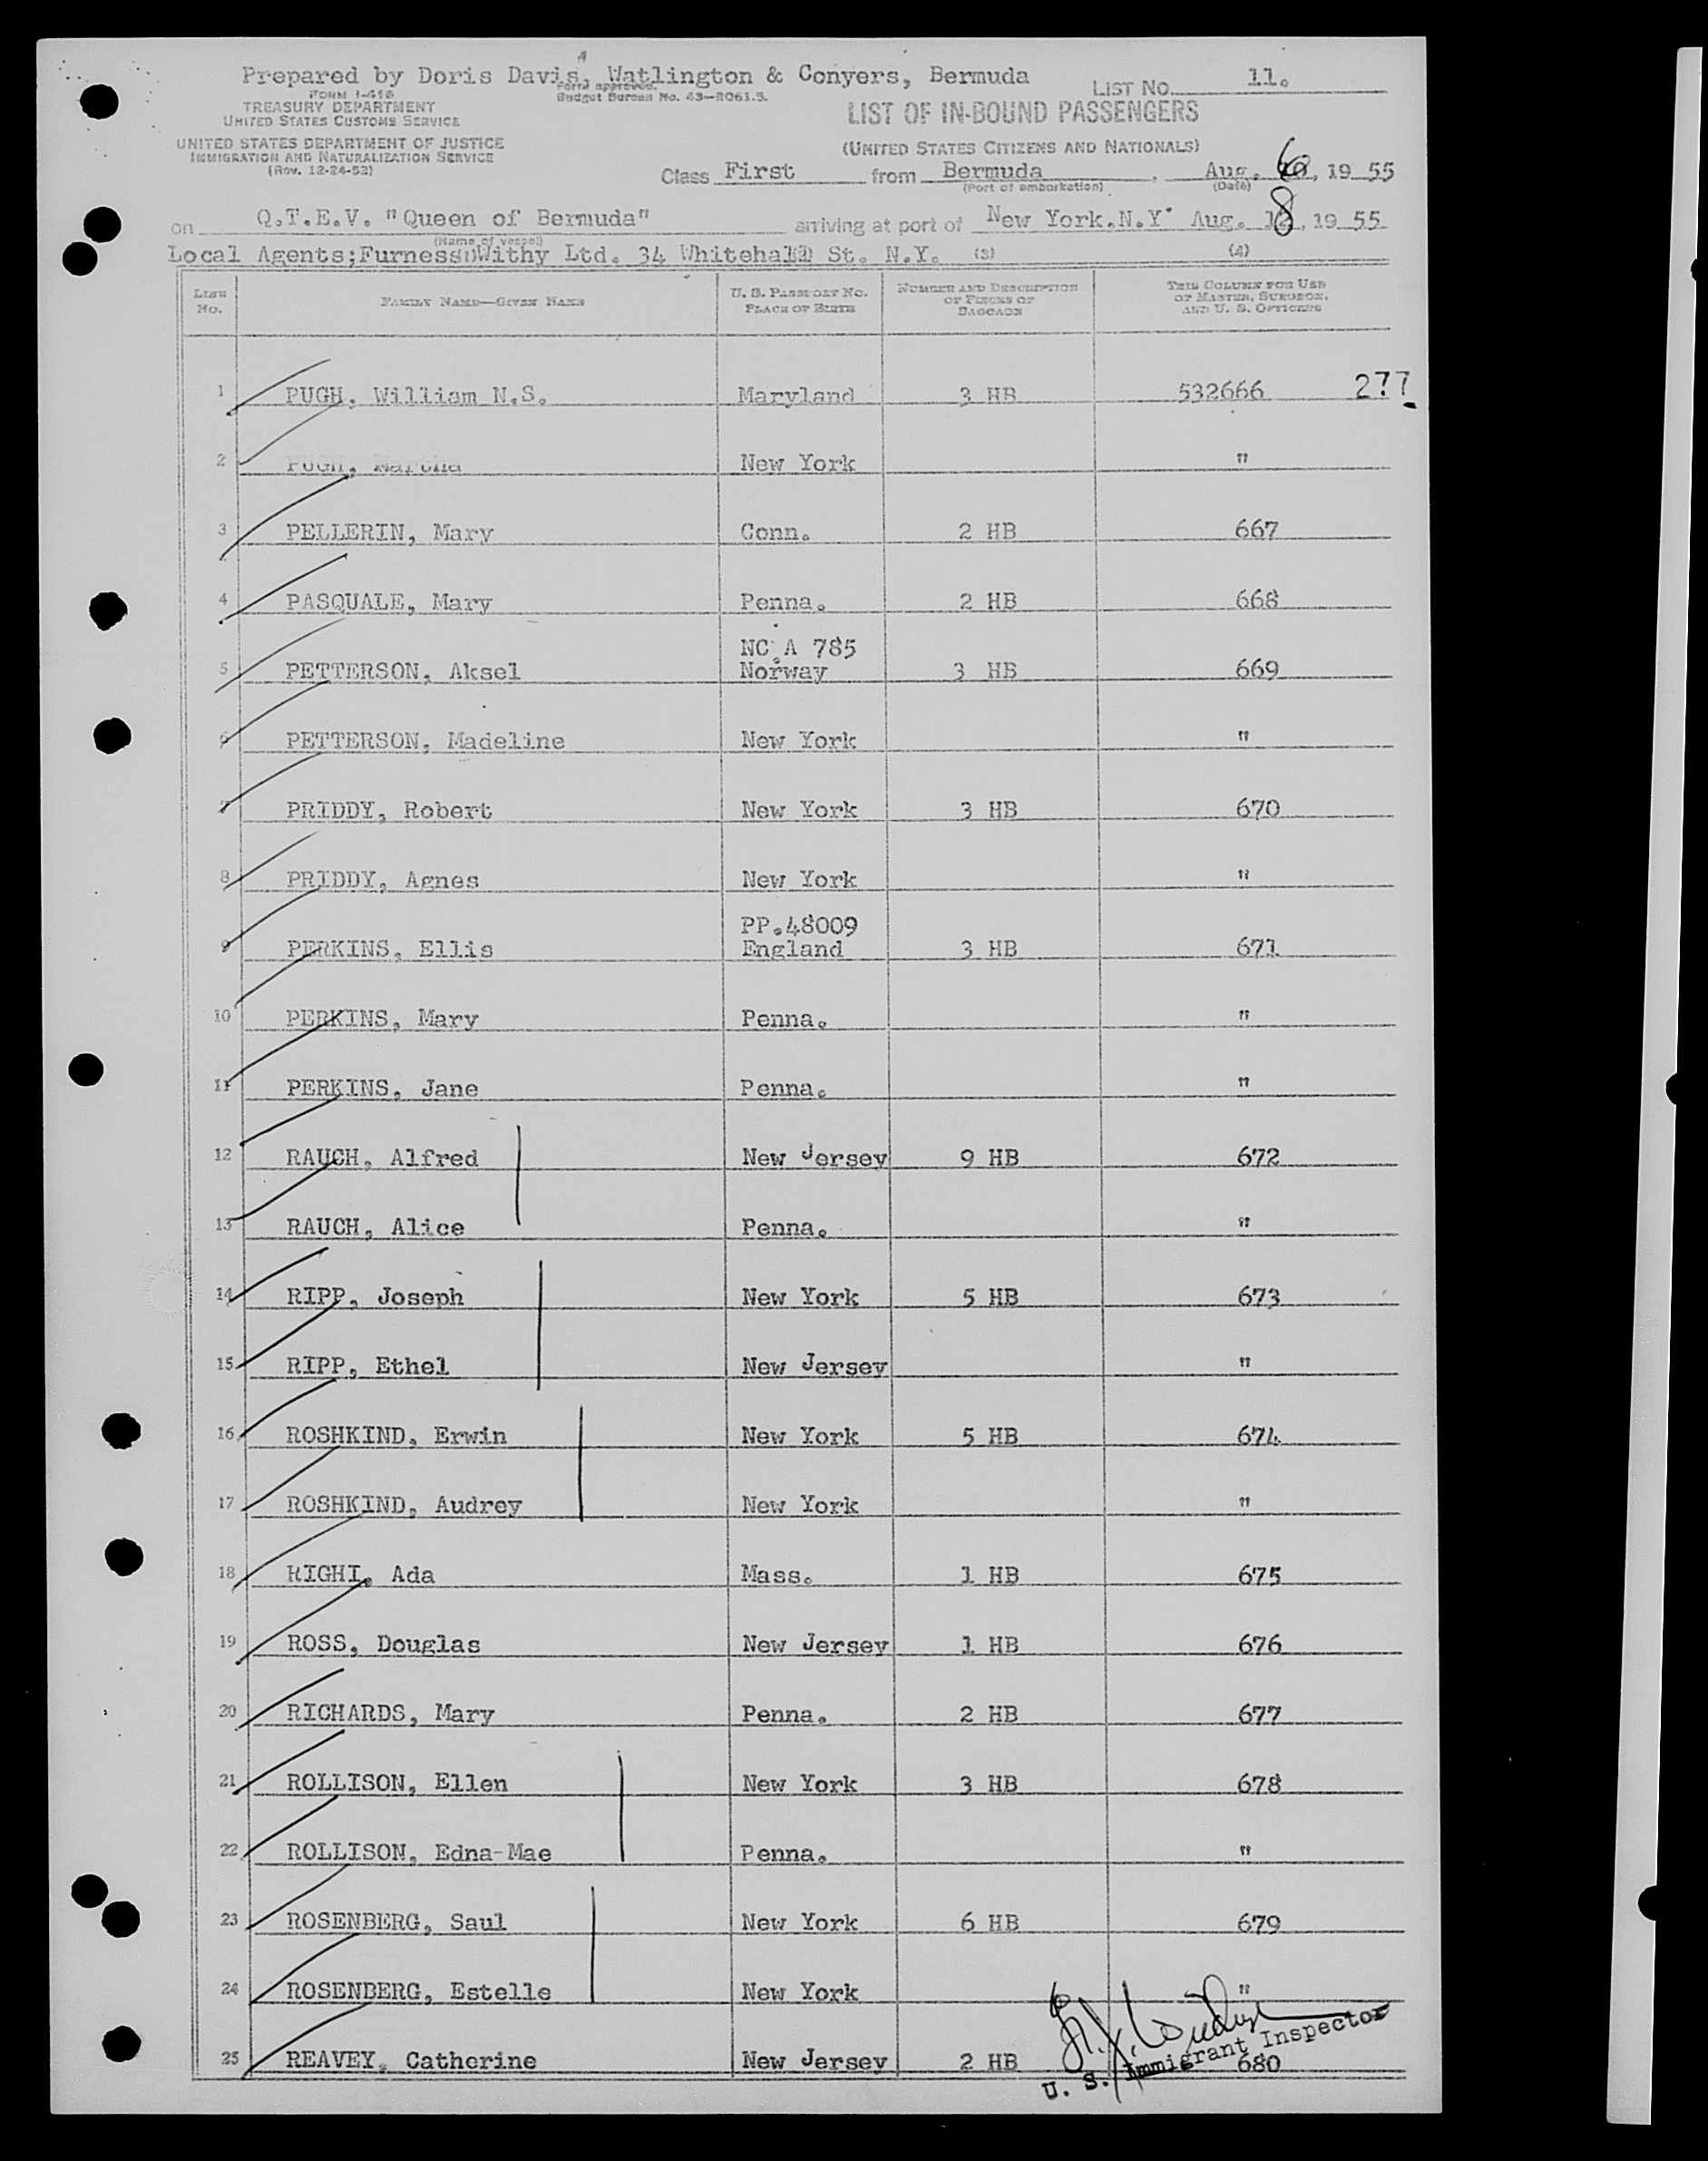 Prepared by Doris Davis, Watlington & Conyers, Bermuda
LIST NO. 11.
FORM I-418
TREASURY DEPARTMENT
UNITED STATES CUSTOMS SERVICE
Form approved.
Budget Bureau No. 43—R061.5.
LIST OF IN-BOUND PASSENGERS
UNITED STATES DEPARTMENT OF JUSTICE
IMMIGRATION AND NATURALIZATION SERVICE
(Rev. 12-24-52)
(UNITED STATES CITIZENS AND NATIONALS)
Class First from Bermuda, Aug. 6, 19 55
(Port of embarkation) (Date)
on Q.T.E.V. "Queen of Bermuda" arriving at port of New York, N.Y. Aug. 8, 19 55
(Name of vessel)
Local Agents;Furness Withy Ltd. 34 Whitehall St. N.Y. (3) (4)
LINE No. FAMILY NAME—GIVEN NAME U. S. PASSPORT NO. PLACE OF BIRTH NUMBER AND DESCRIPTION OF PIECES OF BAGGAGE THIS COLUMN FOR USE OF MASTER, SURGEON, AND U. S. OFFICERS
1 PUGH, William N.S. Maryland 3 HB 532666 277
2 PUGH, Martha New York "
3 PELLERIN, Mary Conn. 2 HB 667
4 PASQUALE, Mary Penna. 2 HB 668
NC A 785
5 PETTERSON, Aksel Norway 3 HB 669
6 PETTERSON, Madeline New York "
7 PRIDDY, Robert New York 3 HB 670
8 PRIDDY, Agnes New York "
PP.48009
9 PERKINS, Ellis England 3 HB 671
10 PERKINS, Mary Penna. "
11 PERKINS, Jane Penna. "
12 RAUCH, Alfred New Jersey 9 HB 672
13 RAUCH, Alice Penna. "
14 RIPP, Joseph New York 5 HB 673
15 RIPP, Ethel New Jersey "
16 ROSHKIND, Erwin New York 5 HB 674
17 ROSHKIND, Audrey New York "
18 RIGHI, Ada Mass. 1 HB 675
19 ROSS, Douglas New Jersey 1 HB 676
20 RICHARDS, Mary Penna. 2 HB 677
21 ROLLISON, Ellen New York 3 HB 678
22 ROLLISON, Edna-Mae Penna. "
23 ROSENBERG, Saul New York 6 HB 679
24 ROSENBERG, Estelle New York "
25 REAVEY, Catherine New Jersey 2 HB 680
U. S. Immigrant Inspector